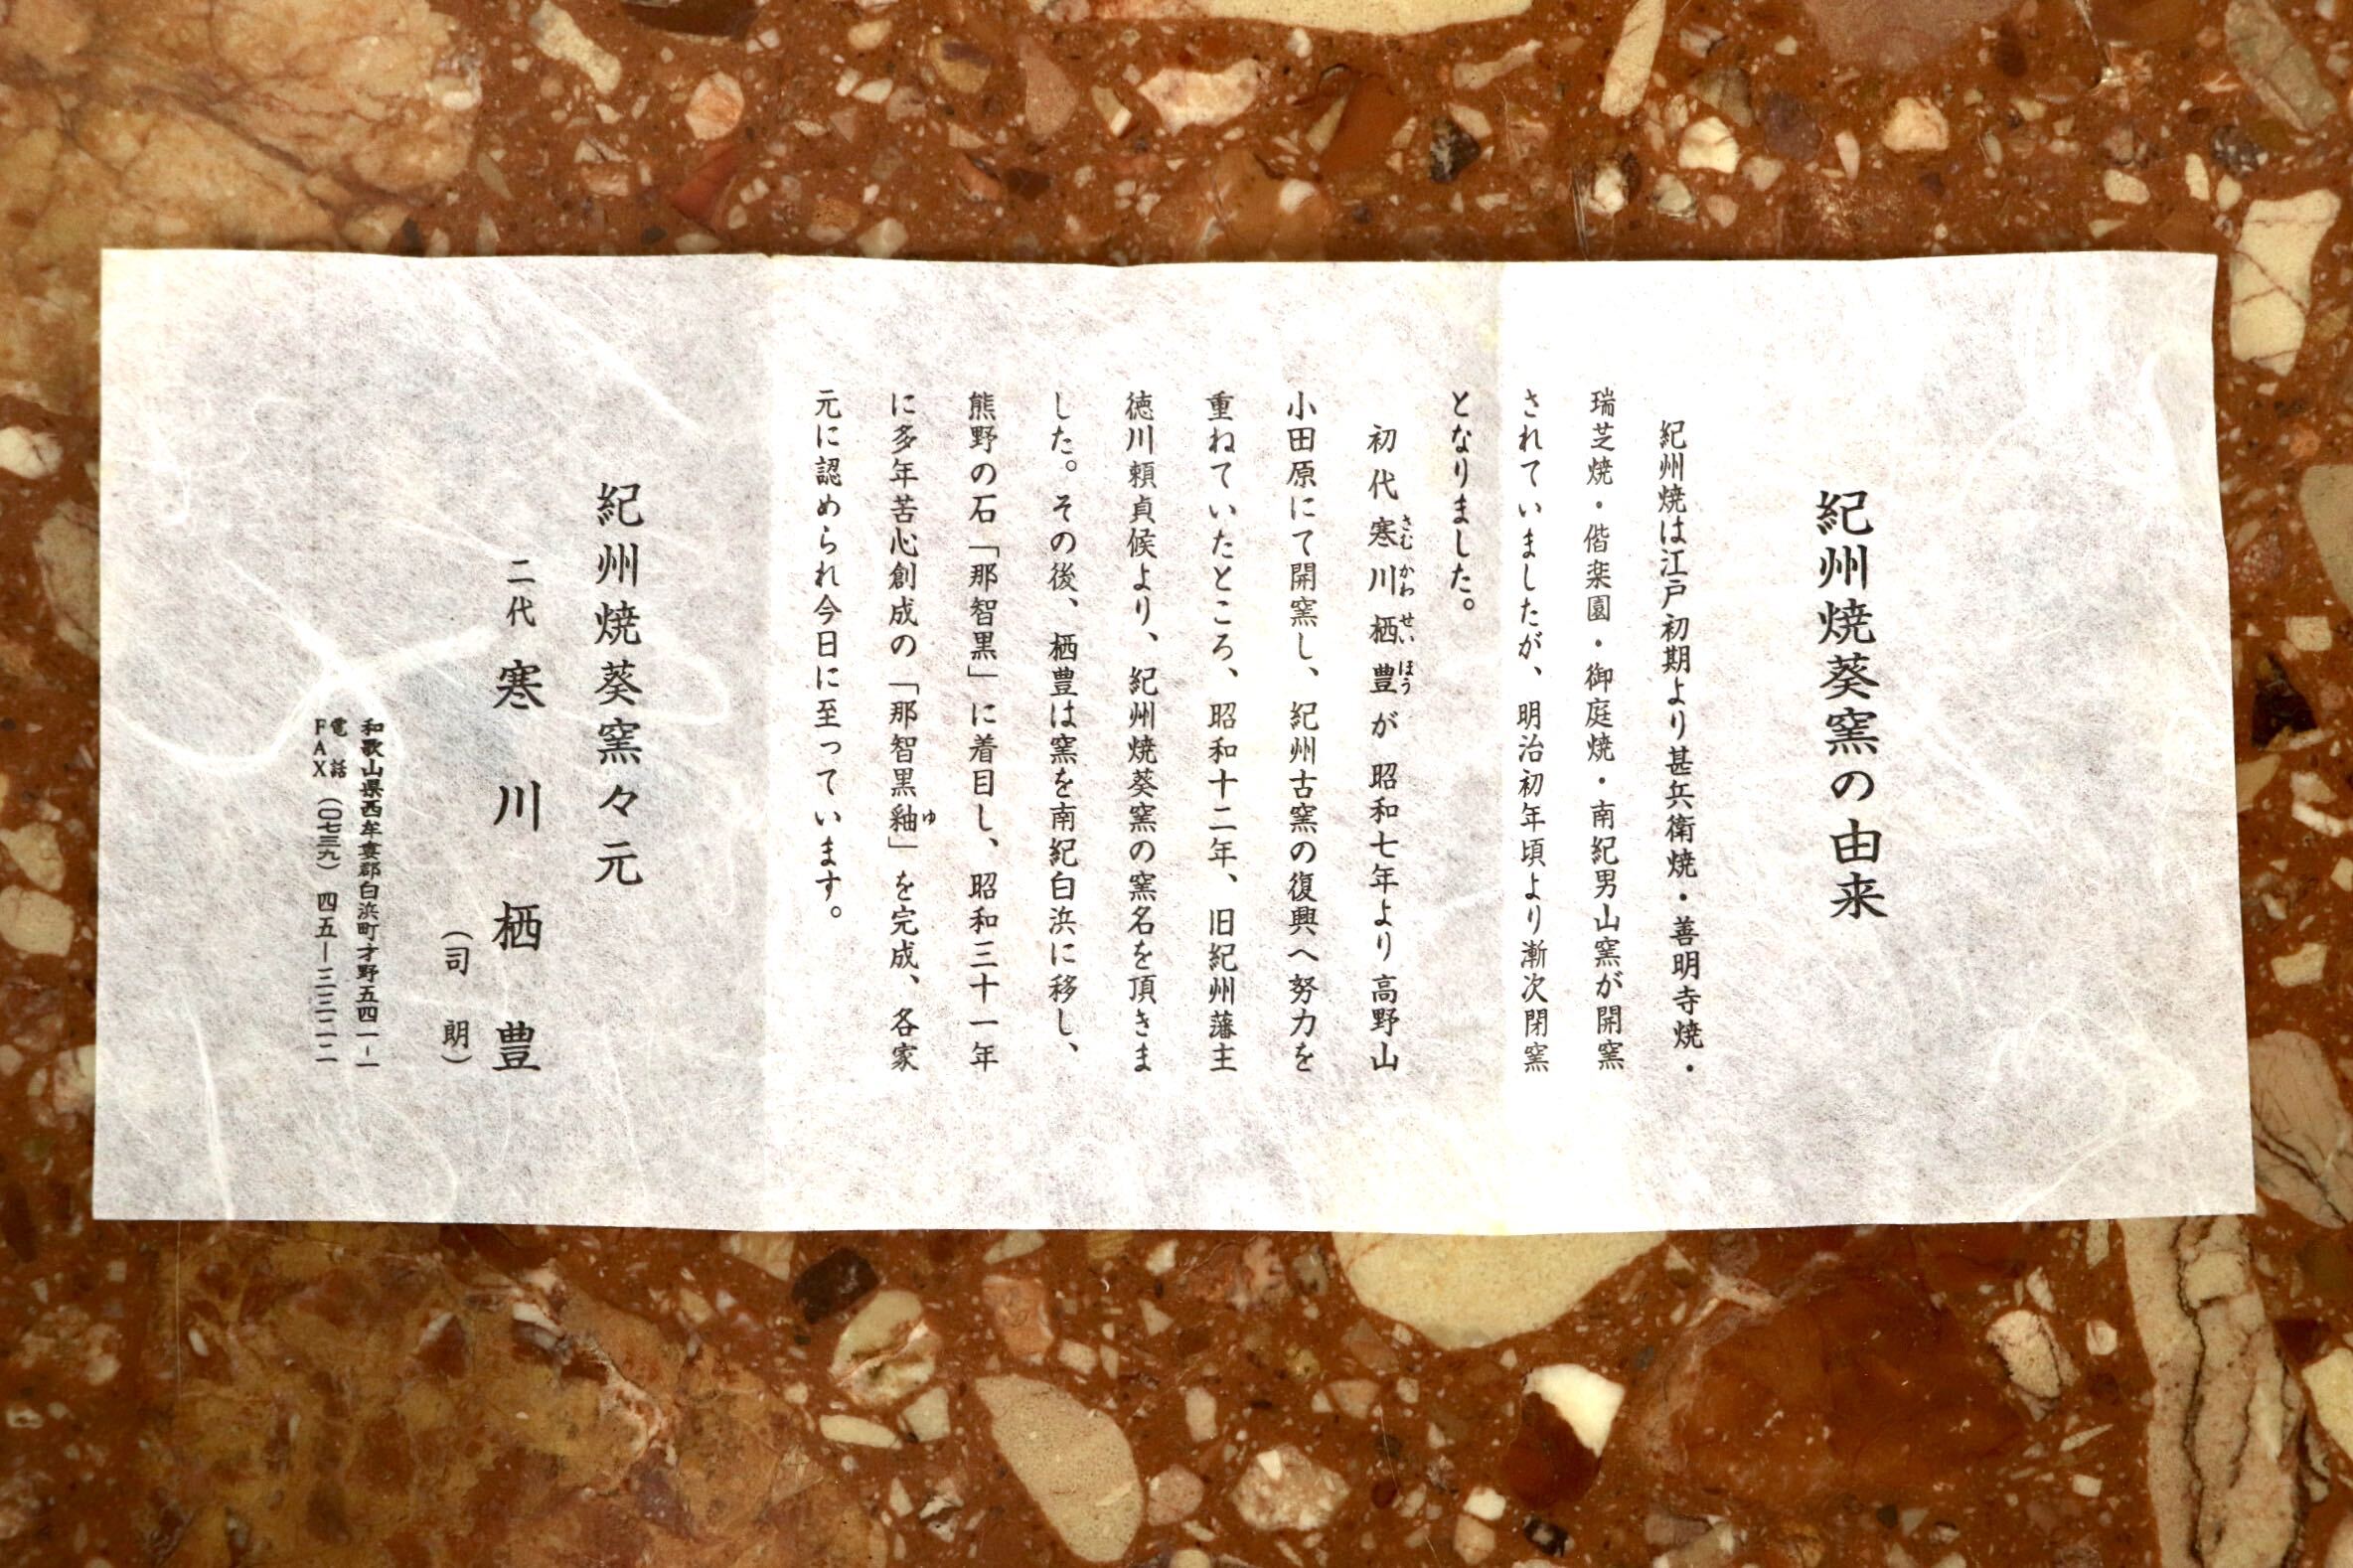 紀州焼葵窯の由来
紀州焼は江戸初期より甚兵衛焼・善明寺焼・
瑞芝焼・偕楽園・御庭焼・南紀男山窯が開窯
されていましたが、明治初年頃より漸次閉窯
となりました。
初代寒川栖豊が昭和七年より高野山
さむかわせいほう
小田原にて開窯し、紀州古窯の復興へ努力を
重ねていたところ、昭和十二年、旧紀州藩主
徳川頼貞候より、紀州焼葵窯の窯名を頂きま
した。その後、栖豊は窯を南紀白浜に移し、
熊野の石「那智黒」に着目し、昭和三十一年
に多年苦心創成の「那智黒釉」を完成、各家
ゆ
元に認められ今日に至っています。
紀州焼葵窯々元
二代 寒川栖豊
（司朗）
和歌山県西牟婁郡白浜町才野五四一－一
電話
FAX（〇七三九）四五－三三二二